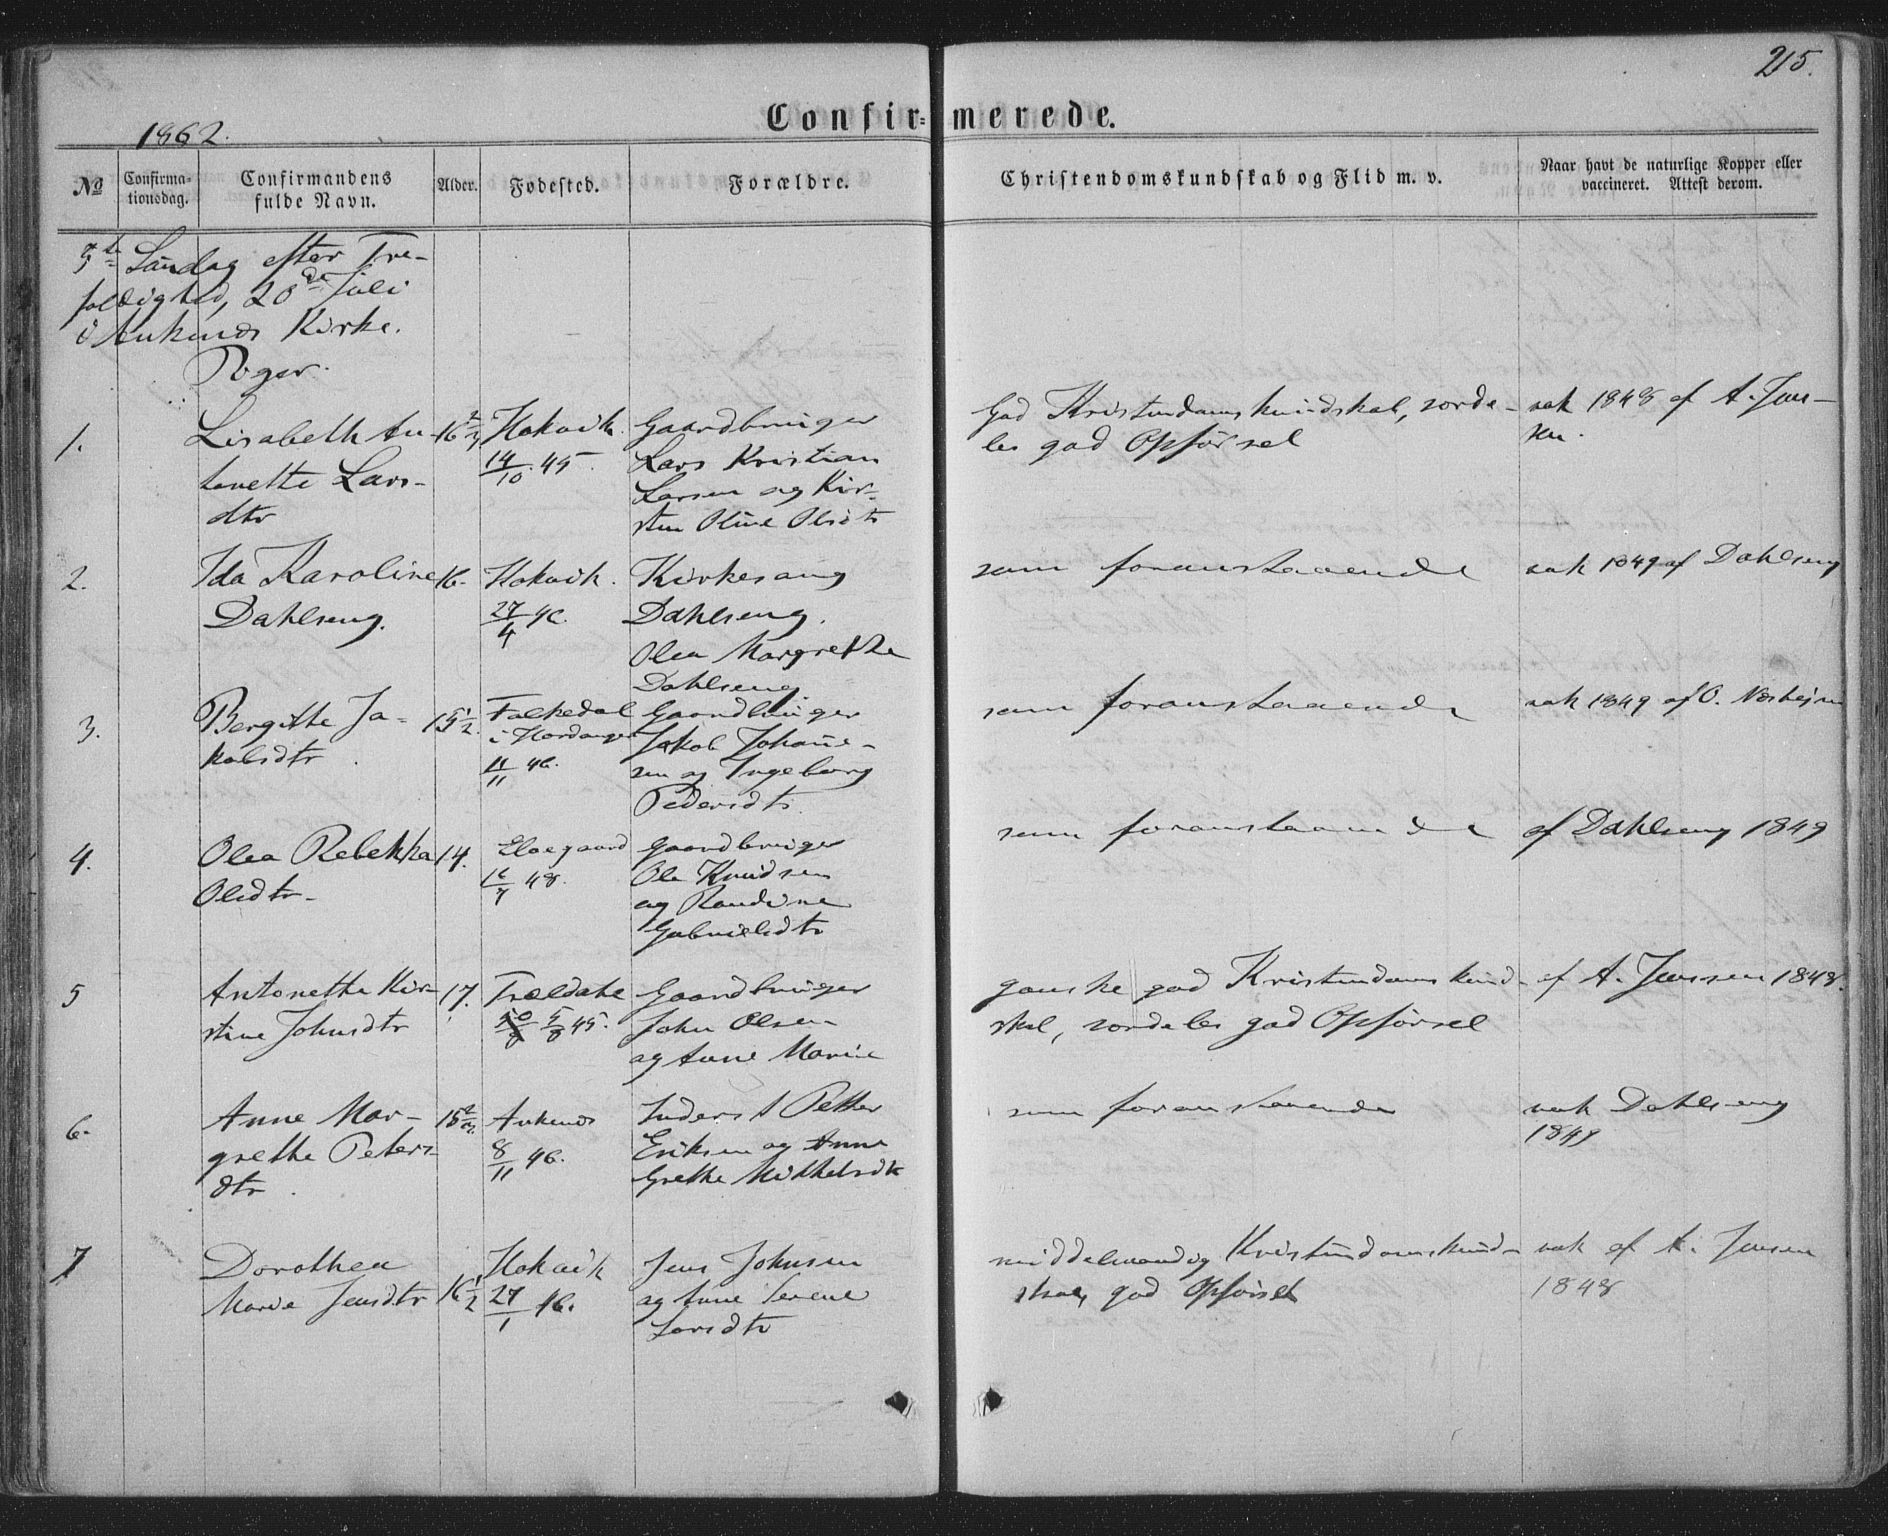 215.
Confir-merede.
1862.
No
Confirma-
tionsdag.
Confirmandens
fulde Navn.
Alder.
Fødested.
Forældre.
Christendomskundskab og Flid m. v.
Naar havt de naturlige Kopper eller
vaccineret. Attest derom.
5te Søndag efter Tre-
foldighed, 20de Juli
i Ankenæs Kirke.
Piger.
1.
Lisabeth An-
tonette Lars-
dtr
16 2/3
Hokvik.
14/10 45.
Gaardbruger
Lars Kristian
Larsen og Kir-
sten Oline Olsdtr
God Kristendomskundskab, sorde-
les god Opførsel
vak 1848 af A. Jen-
sen.
2.
Ida Karoline
Dahlseng.
16.
Hokvik.
27/4 46.
Kirkesang
Dahlseng.
Olea Margrethe
Dahlseng
som foranstaaende
vak 1849 af Dahlseng
3.
Bergitte Ja-
kobsdtr.
15 1/2.
Falkedal
i Hardanger
11/11 46.
Gaardbruger
Jakob Johane-
sen og Ingeborg
Pedersdtr.
som foranstaaende
vak 1849 af O.
4.
Olea Rebekka
Olsdtr.
14.
Elvegaard
16/7 48.
Gaardbruger
Ole Knudsen
og Randine
Gabrielsdtr
som foranstaaende
af Dahlseng 1849
5
Antonetta Kir-
stine Johnsdtr
17.
Trældahl
5/8 45.
Gaardbruger
John Olsen
og Anne Marie
ganske god Kristendomskund-
skab, sordeles god Opførsel
af A. Jenssen 1848.
6.
Anne Mar-
grethe Peters-
dtr.
15 2/3
Ankenes
8/11 46.
Inderst Petter
Eriksen og Anne
Grethe Mikkelsdtr
som foranstaaende
vak Dahlseng
1849
7
Dorothea
Marie Jensdtr
16 1/2
Hokvik
27/1 46.
Jens Johnsen
og Anne Serene
Larsdtr
middelmaadig Kristendomskund-
skab, god Opførsel
vak af A. Jensen
1848